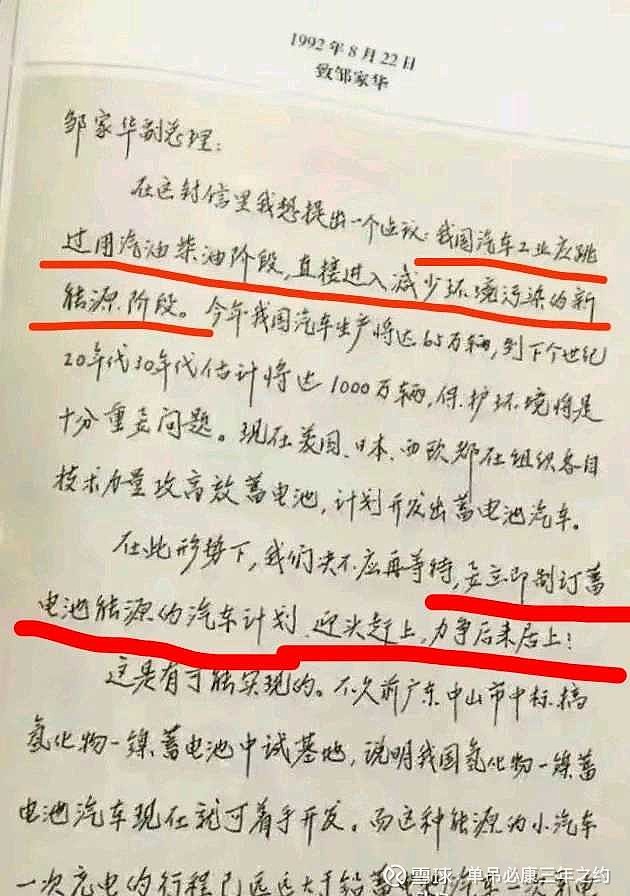 1992年8月22日
致邹家华
邹家华副总理：
在这封信里我想提出一个建议：我国汽车工业应跳
过用汽油柴油阶段，直接进入减少环境污染的新
能源阶段。今年我国汽车生产将达65万辆，到下个世纪
20年代30年代估计将达1000万辆，保护环境将是
十分重要问题。现在美国、日本、西欧都在组织各自
技术力量攻高效蓄电池，计划开发出蓄电池汽车。
在此形势下，我们决不应再等待，要立即制订蓄
电池能源的汽车计划，迎头赶上，力争后来居上！
这是有可能实现的。不久前广东中山市中标搞
氢化物—镍蓄电池中试基地，说明我国氢化物—镍蓄
电池汽车现在就可着手开发。而这种能源的小汽车
一次充电的行程已远远大于铅蓄电池汽车
雪球：单吊必康三年之约